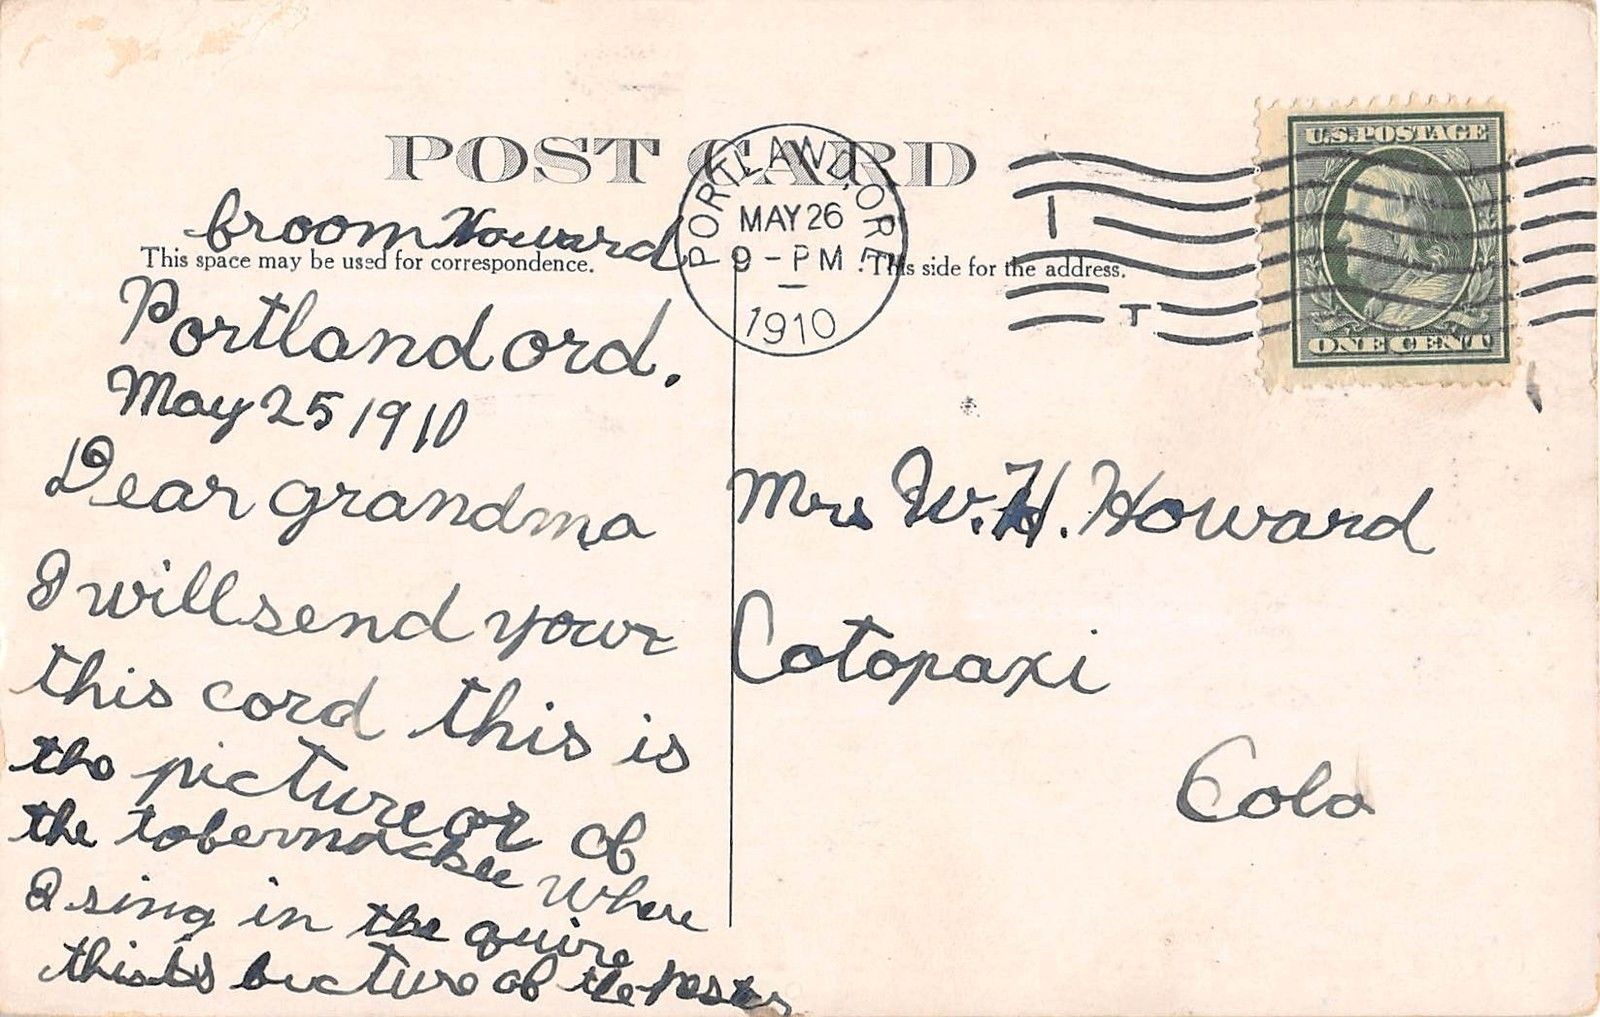 POST CARD
U.S. POSTAGE
ONE CENT
PORTLAND, ORE.
MAY 26
9 - PM
1910
This space may be used for correspondence.
This side for the address.
from Howard
Portland ord.
May 25 1910
Dear grandma
I will send your
this cord this is
the picture or of
the tobernackle where
I sing in the quire
this is bucture of the Pastor
Mrs W. H. Howard
Cotopaxi
Colo